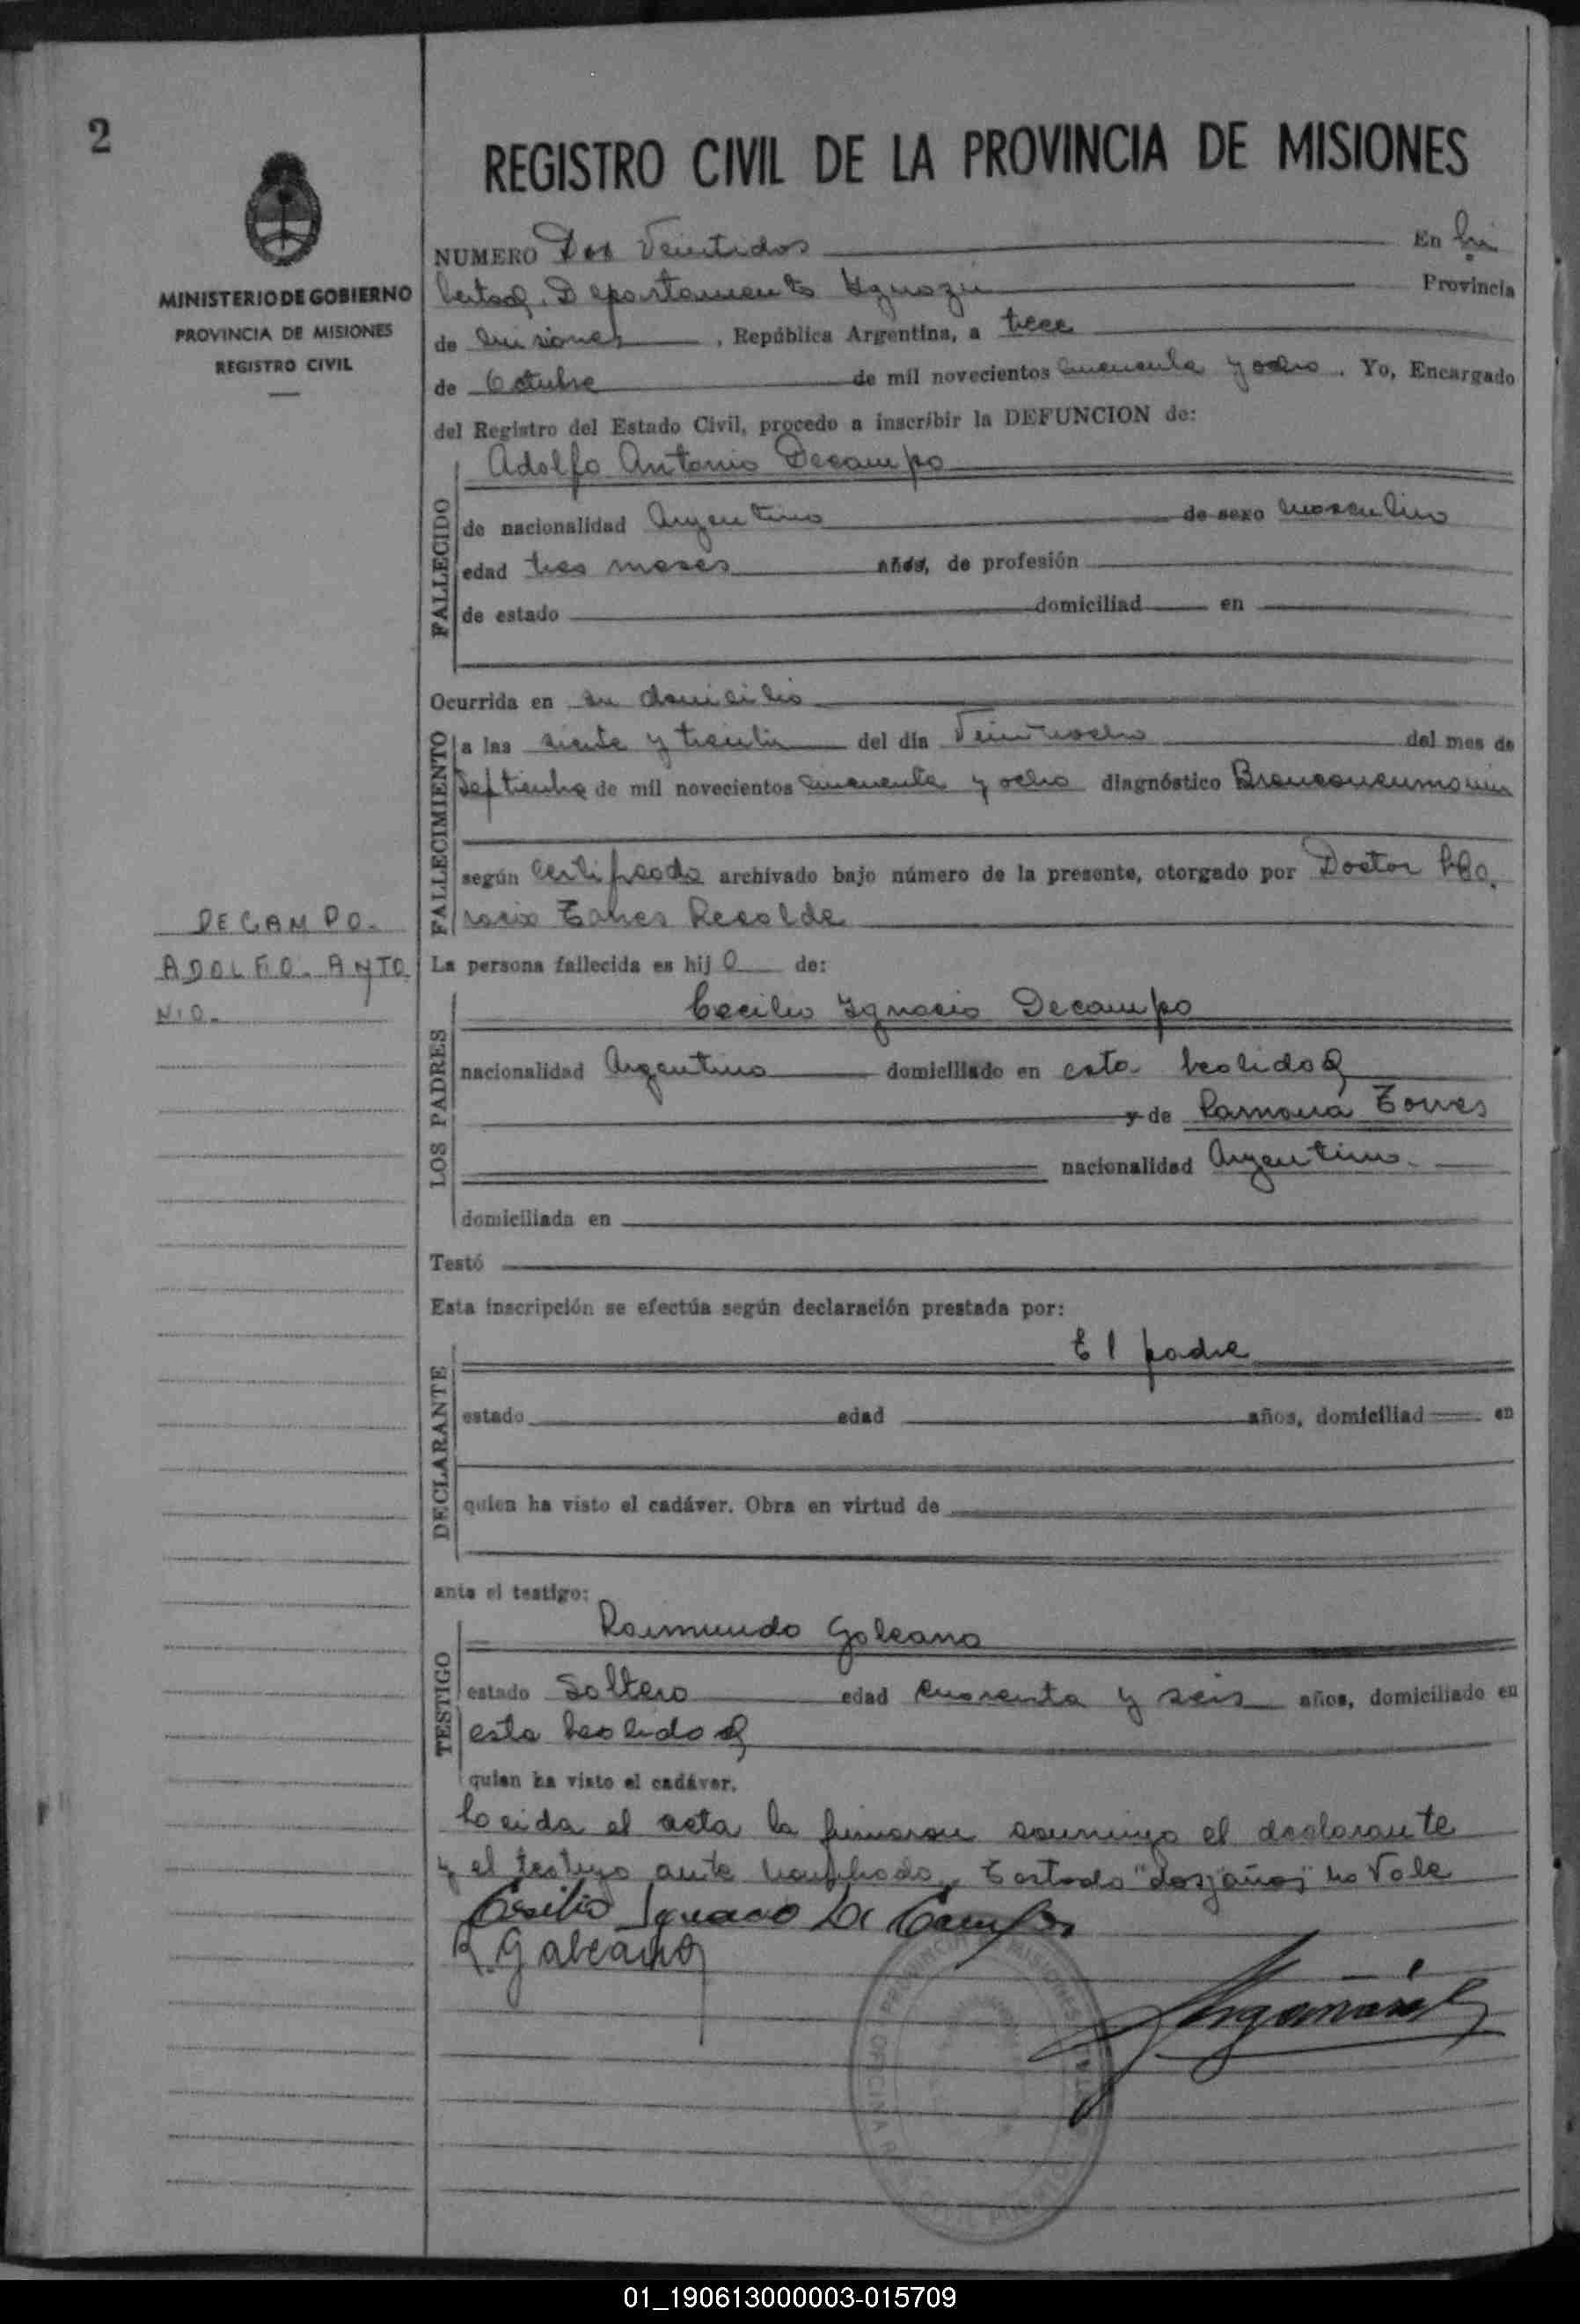 2
REGISTRO CIVIL DE LA PROVINCIA DE MISIONES
MINISTERIO DE GOBIERNO
PROVINCIA DE MISIONES
REGISTRO CIVIL
NUMERO Dos Veintidos En Li
bertad. Departamento Yguazú Provincia
de Misiones, República Argentina, a trece
de Octubre de mil novecientos cincuenta y ocho. Yo, Encargado
del Registro del Estado Civil, procedo a inscribir la DEFUNCION de:
FALLECIDO
Adolfo Antonio Decampo
de nacionalidad Argentino de sexo masculino
edad tres meses años, de profesión
de estado domiciliad en
Ocurrida en su domicilio
FALLECIMIENTO
a las siete y treinta del día Veintiocho del mes de
Septiembre de mil novecientos cincuenta y ocho diagnóstico Bronconeumonia
según certificado archivado bajo número de la presente, otorgado por Doctor
Recalde
DECAMPO.
ADOLFO. ANTO
NIO.
La persona fallecida es hijo de:
LOS PADRES
Cecilio Ygnacio Decampo
nacionalidad Argentino domiciliado en esta localidad
y de Ramona Torres
nacionalidad Argentina.
domiciliada en
Testó
Esta inscripción se efectúa según declaración prestada por:
DECLARANTE
El padre
estado edad años, domiciliad en
quien ha visto el cadáver. Obra en virtud de
ante el testigo:
TESTIGO
Raimundo Galeano
estado Soltero edad cuarenta y seis años, domiciliado en
esta localidad
quien ha visto el cadáver.
Leida el acta la firmaron conmigo el declarante
y el testigo ante nombrado, Testado "dos" "años" no Vale
Cesilio Ignacio De Campo
R. Galeano
PROVINCIA MISIONES
01_190613000003-015709